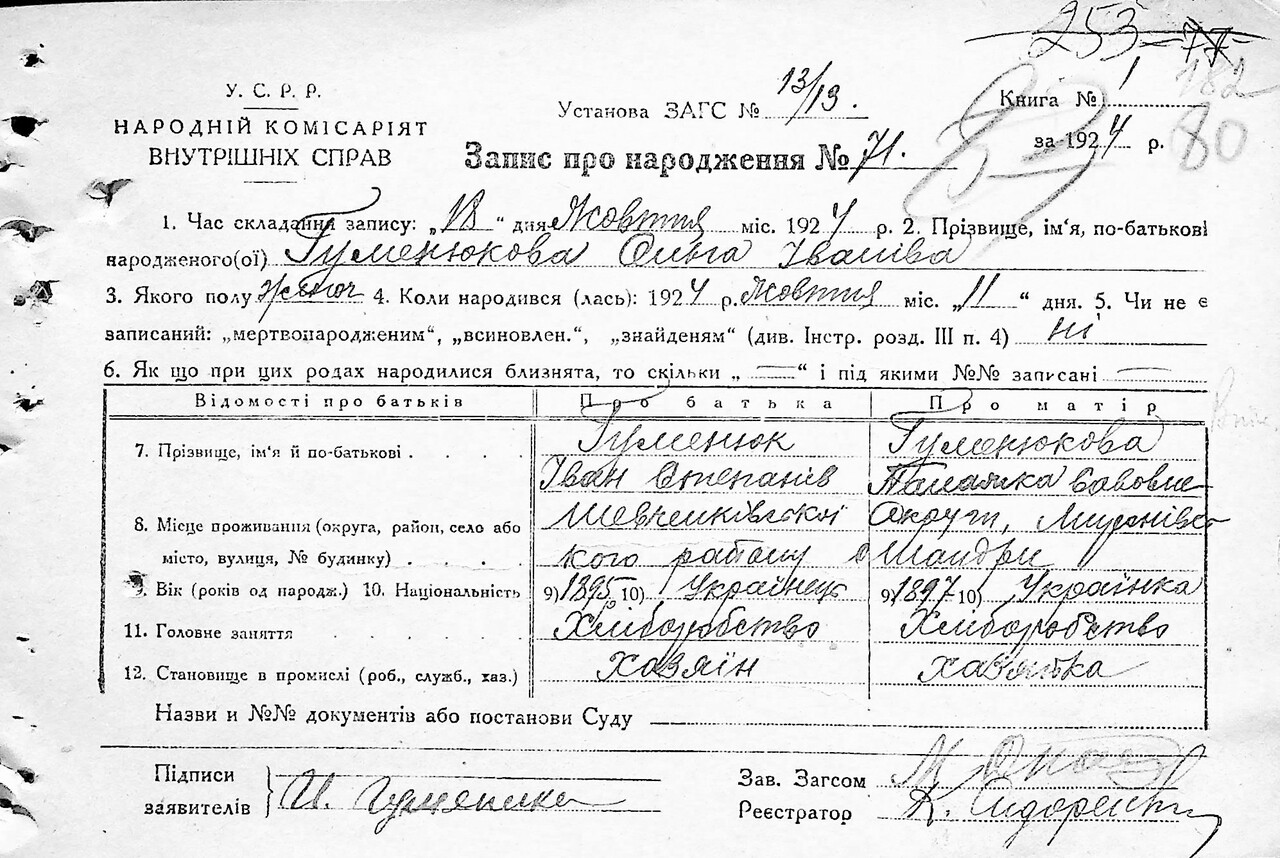 253 77
182
У. С. Р. Р.
НАРОДНІЙ КОМІСАРІЯТ
ВНУТРІШНІХ СПРАВ
Установа ЗАГС № 13/13.
Книга № 1
за 1924 р. 80
Запис про народження № 71.
1. Час складання запису: „18“ дня Жовтня міс. 1924 р. 2. Прізвище, ім'я, по-батькові
народженого(ої) Гуменюкова Ольга Іванівна
3. Якого полу жіноч 4. Коли народився (лась): 1924 р. Жовтня міс. „11“ дня. 5. Чи не є
записаний: „мертвонародженим“, „всиновлен.“, „знайденям“ (див. Інстр. розд. III п. 4) ні
6. Як що при цих родах народилися близнята, то скільки „ — “ і під якими №№ записані —
Відомості про батьків Про батька Про матір
7. Прізвище, ім'я й по-батькові . . . . Гуменюк Гуменюкова
Іван Степанів Палажка Савовна
8. Місце проживання (округа, район, село або Шевченківської Округи, Миронівсь
місто, вулиця, № будинку) . . . . кого району Шандри
9. Вік (років од народж.) 10. Національність 9) 1895 10) Українець 9) 1897 10) Українка
11. Головне заняття . . . . . Хліборобство Хліборобство
12. Становище в промислі (роб., служб., хаз.) Хазяїн хазяйка
Назви и №№ документів або постанови Суду
Підписи
заявителів И. Гуменюк
Зав. Загсом
Реєстратор К. Сидоренко